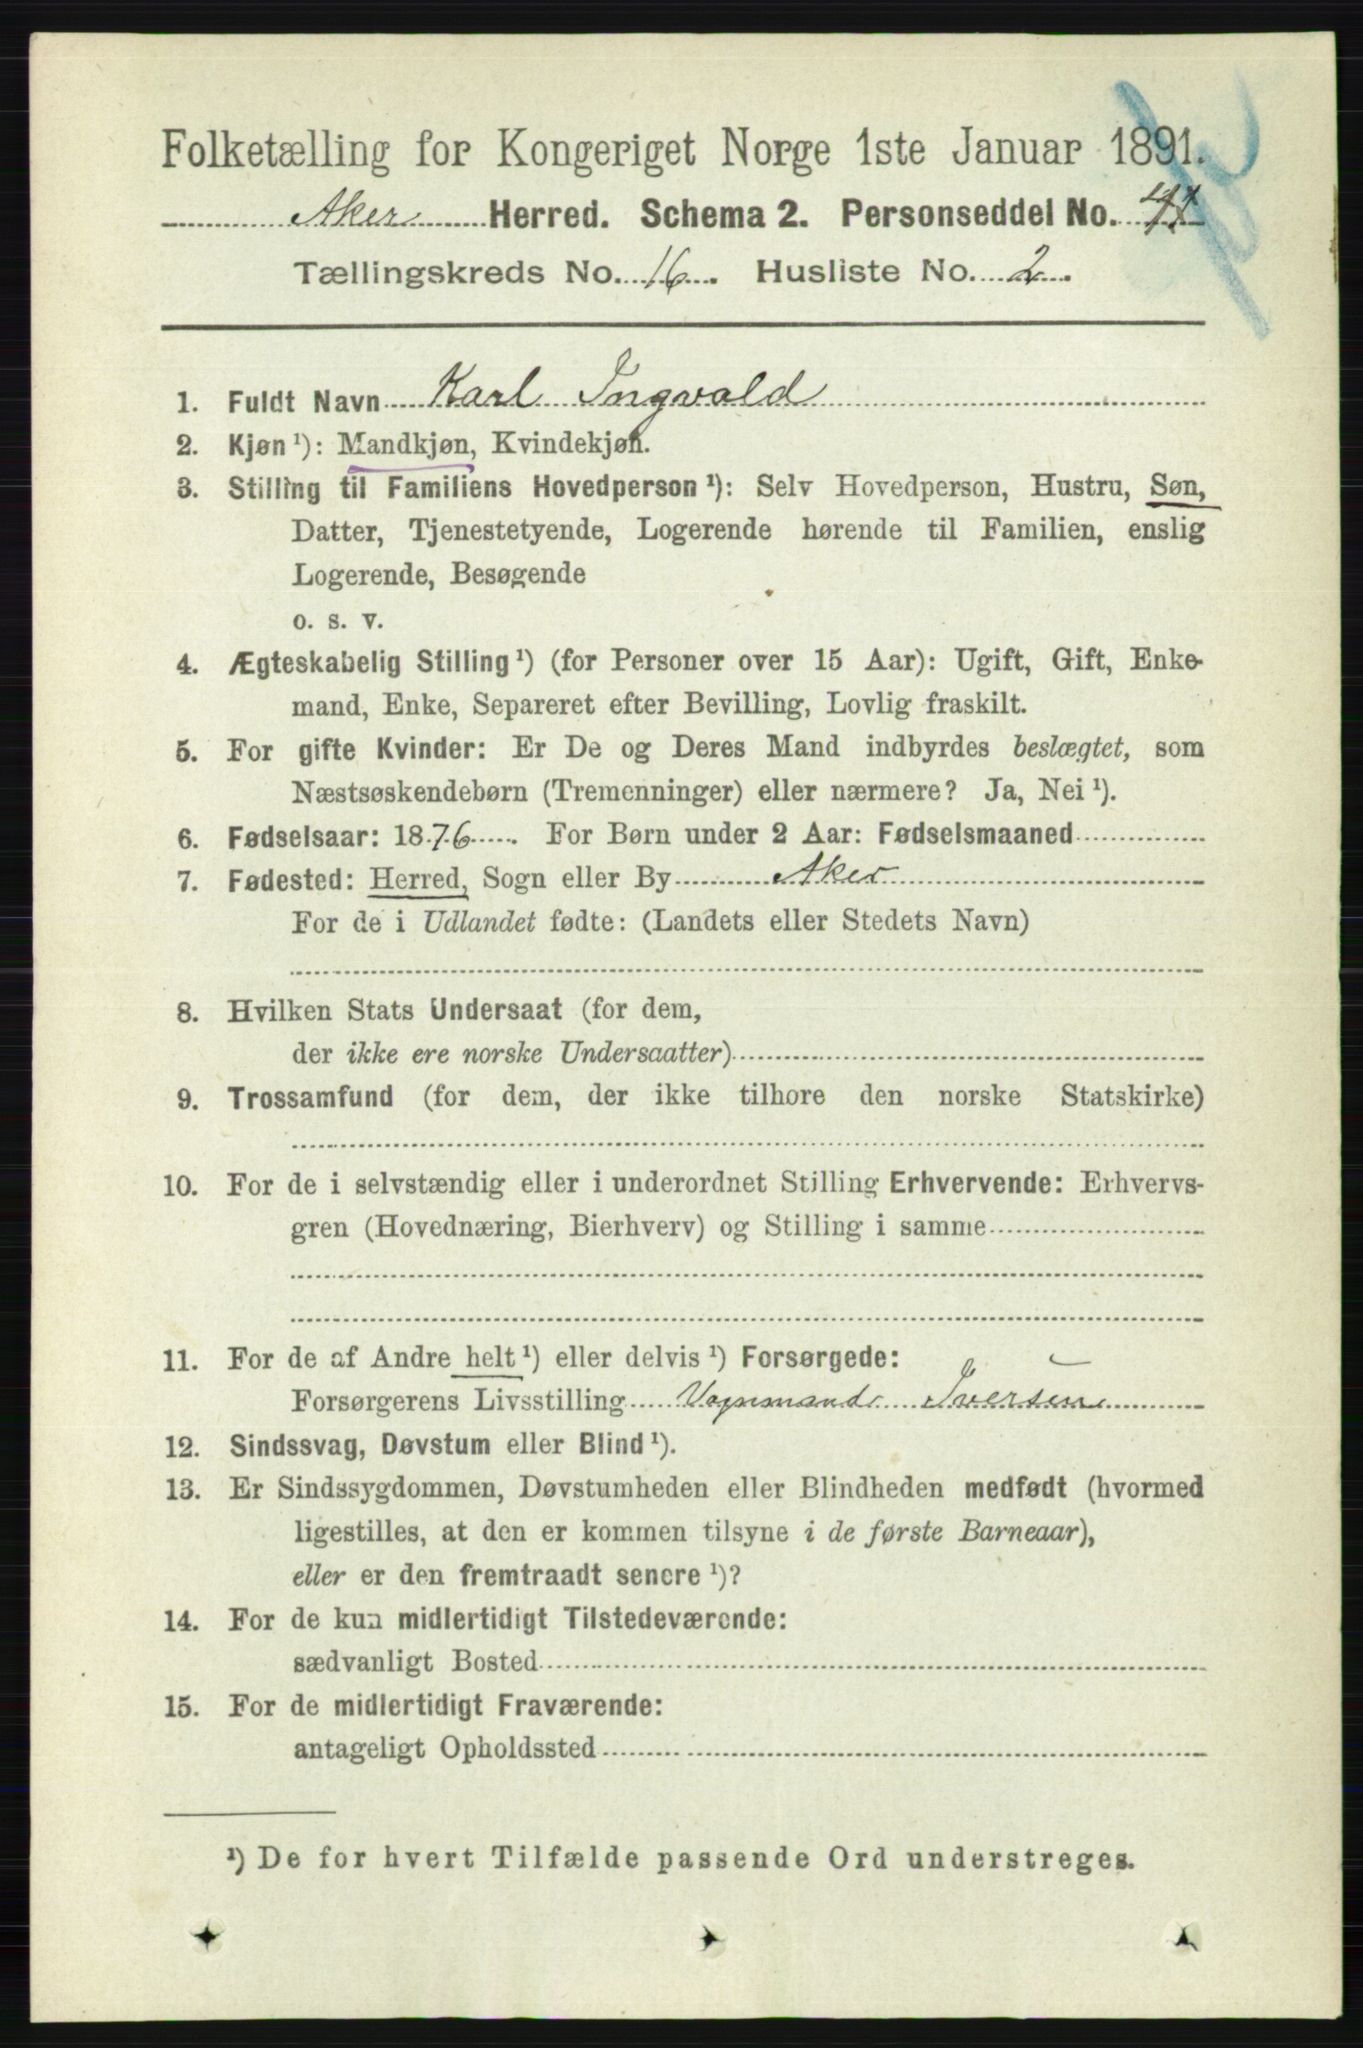 Folketælling for Kongeriget Norge 1ste Januar 1891.
Aker Herred. Schema 2. Personseddel No.
Tællingskreds No. 16. Husliste No. 2.
1. Fuldt Navn Karl Ingvald
2. Kjøn ¹): Mandkjøn, Kvindekjøn.
3. Stilling til Familiens Hovedperson ¹): Selv Hovedperson, Hustru, Søn,
Datter, Tjenestetyende, Logerende hørende til Familien, enslig
Logerende, Besøgende
o. s. v.
4. Ægteskabelig Stilling ¹) (for Personer over 15 Aar): Ugift, Gift, Enke-
mand, Enke, Separeret efter Bevilling, Lovlig fraskilt.
5. For gifte Kvinder: Er De og Deres Mand indbyrdes beslægtet, som
Næstsøskendebørn (Tremenninger) eller nærmere? Ja, Nei ¹).
6. Fødselsaar: 1876. For Børn under 2 Aar: Fødselsmaaned
7. Fødested: Herred, Sogn eller By Aker
For de i Udlandet fødte: (Landets eller Stedets Navn)
8. Hvilken Stats Undersaat (for dem,
der ikke ere norske Undersaatter)
9. Trossamfund (for dem, der ikke tilhøre den norske Statskirke)
10. For de i selvstændig eller i underordnet Stilling Erhvervende: Erhvervs-
gren (Hovednæring, Bierhverv) og Stilling i samme
11. For de af Andre helt ¹) eller delvis ¹) Forsørgede:
Forsørgerens Livsstilling Vognmand Iversen
12. Sindssvag, Døvstum eller Blind ¹).
13. Er Sindssygdommen, Døvstumheden eller Blindheden medfødt (hvormed
ligestilles, at den er kommen tilsyne i de første Barneaar),
eller er den fremtraadt senere ¹)?
14. For de kun midlertidigt Tilstedeværende:
sædvanligt Bosted
15. For de midlertidigt Fraværende:
antageligt Opholdssted
¹) De for hvert Tilfælde passende Ord understreges.